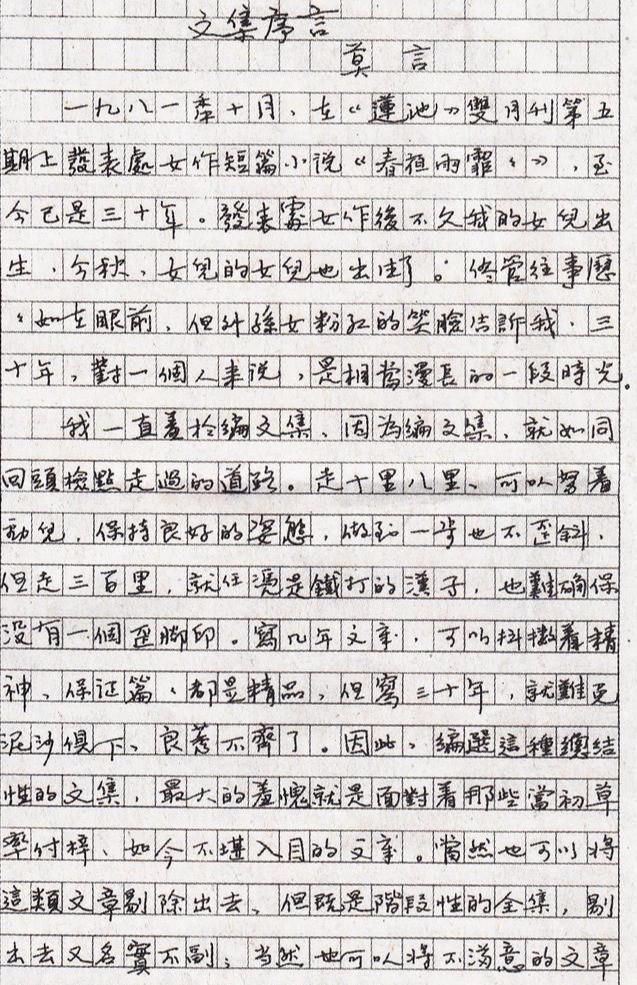 文集序言
莫言
一九八一季十月，在《蓮池》雙月刊第五
期上發表處女作短篇小说《春夜雨霏々》，至
今已是三十年。發表處女作後不久我的女兒出
生，今秋，女兒的女兒也出生了。儘管往事歷
々如在眼前，但外孫女粉红的笑臉告訴我，三
十年，對一個人来说，是相當漫長的一段時光。
我一直羞於编文集，因為编文集，就如同
回頭檢點走過的道路。走十里八里，可以努着
劲兒，保持良好的姿態，做到一步也不歪斜，
但走三百里，就任凴是鐵打的漢子，也難确保
没有一個歪脚印。寫几年文章，可以抖擞着精
神，保证篇々都是精品，但寫三十年，就難免
泥沙俱下，良莠不齊了。因此，编選這種總结
性的文集，最大的羞愧就是面對着那些當初草
率付梓、如今不堪入目的文章。當然也可以将
這類文章剔除出去，但既是階段性的全集，剔
出去又名實不副；当然也可以将不滿意的文章